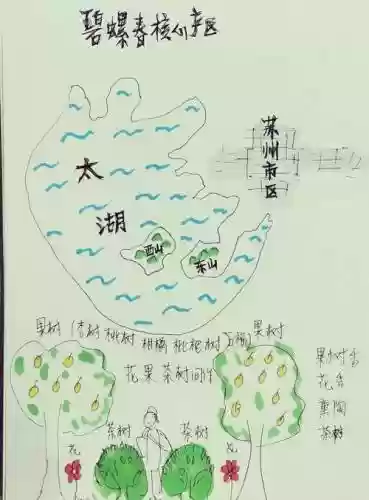 碧螺春核心产区
苏州市区
太湖
西山
东山
果树(杏树 桃树 柑橘 枇杷树 石榴)果树
花果茶树间作
果树香
花香
熏陶
茶树
茶树
茶树
花
花